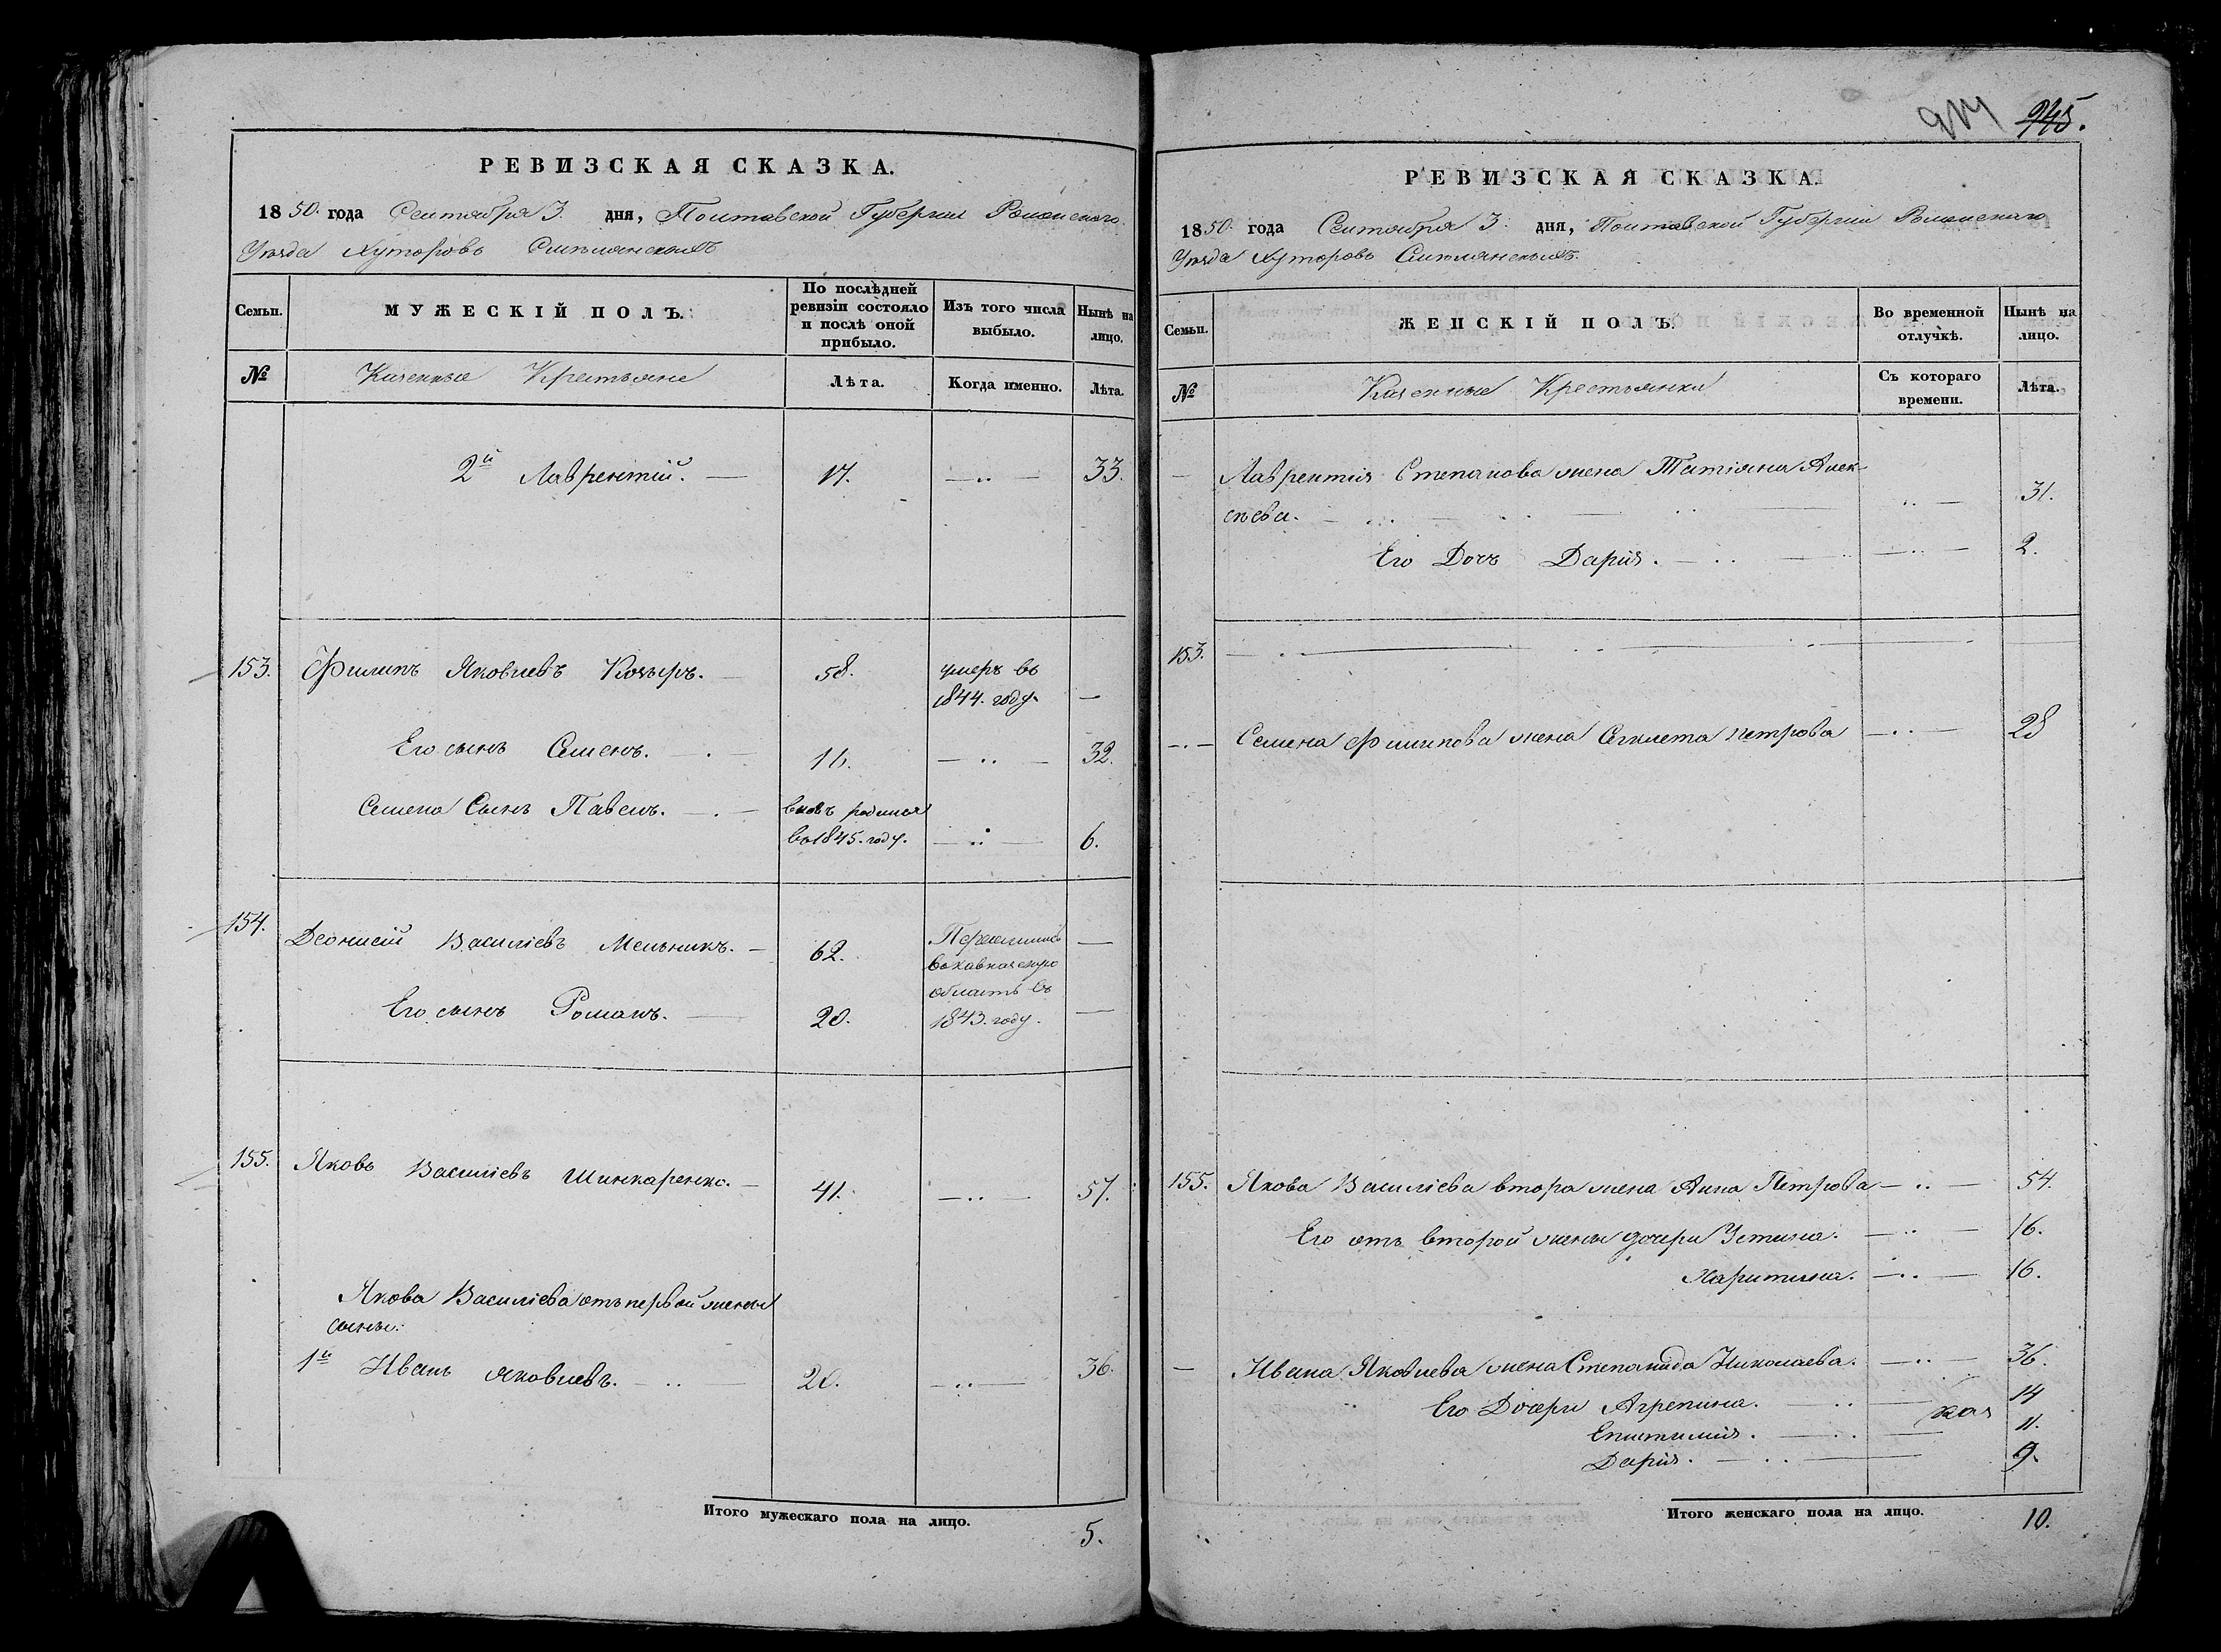 945.
РЕВИЗСКАЯ СКАЗКА.
1850. года Сентября 3. дня, Полтавской Губернии Роменскаго
Уѣзда Хуторовъ
Семьи.
МУЖЕСКІЙ ПОЛЪ.
По послѣдней
ревизіи состояло
и послѣ оной
прибыло.
Изъ того числа
выбыло.
Нынѣ на
лицо.
№
Казенные Крестьяне
Лѣта.
Когда именно.
Лѣта.
2й Лаврентій. — 17. —..— 33.
153. Филипъ Яковлевъ Козырь. — 58. умеръ въ
1844. году. —
Его сынъ Семенъ. —.— 16. —..— 32.
Семена Сынъ Павелъ. —.— вновь родился
въ 1845. году. —..— 6.
154. Деонисій Василіевъ Мельникъ. — 62. Переселились —
въ кавказскую
область въ
Его сынъ Романъ. — 20. 1843. году. —
155. Яковъ Василіевъ Шинкаренко. — 41. —..— 57.
Якова Василіева отъ первой жены
сыны:
1й Иванъ Яковлевъ. —.. 20. —..— 36.
Итого мужескаго пола на лицо.
5.
РЕВИЗСКАЯ СКАЗКА.
1850. года Сентября 3. дня, Полтавской Губернии Роменскаго
Уѣзда Хуторовъ
Семьи.
ЖЕНСКІЙ ПОЛЪ.
Во временной
отлучкѣ.
Нынѣ на
лицо.
№
Казенные Крестьянки
Съ котораго
времени.
Лѣта.
— Лаврентія Степанова жена Татіяна Алек-
сѣева. — ..— 31.
Его Дочь Дарія. —..— 2.
153.
—.— Семена Филипова жена петрова —..— 28
155. Якова Василіева втора жена Анна Петрова —..— 54.
Его отъ второй жены дочери Устина. —..— 16.
Харитина. —..— 16.
— Ивана Яковлева жена Степанида Николаева. —..— 36.
Его Дочери Агрепина. ..— 14
Епистимія. —..— 11.
Дарія. —..— 9.
Итого женскаго пола на лицо.
10.